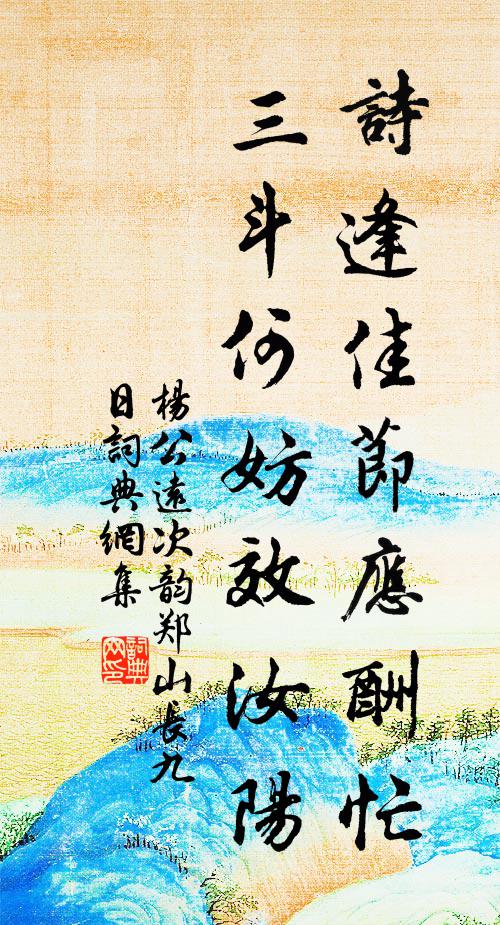 詩逢佳節應酬忙
三斗何妨效汝陽
楊公遠次韵郑山長九
日詞典網集
詞典